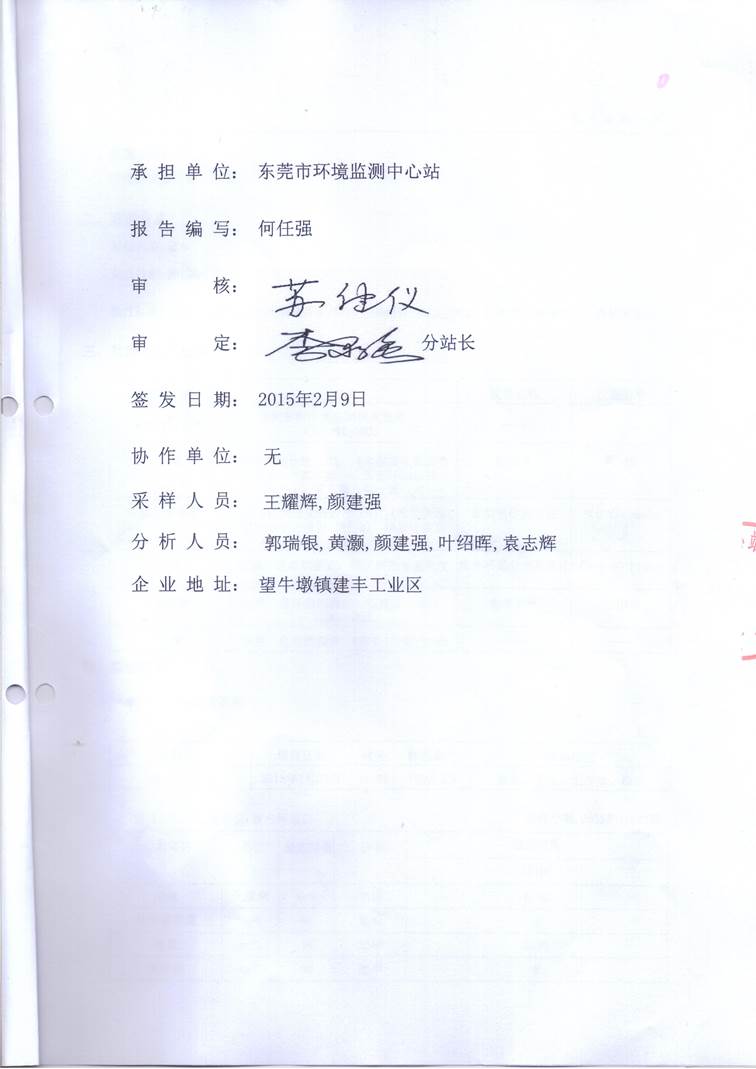 承担单位： 东莞市环境监测中心站
报告编写： 何任强
审核： 苏
审定： 李 分站长
签发日期： 2015年2月9日
协作单位： 无
采样人员： 王耀辉,颜建强
分析人员： 郭瑞银,黄灏,颜建强,叶绍晖,袁志辉
企业地址： 望牛墩镇建丰工业区